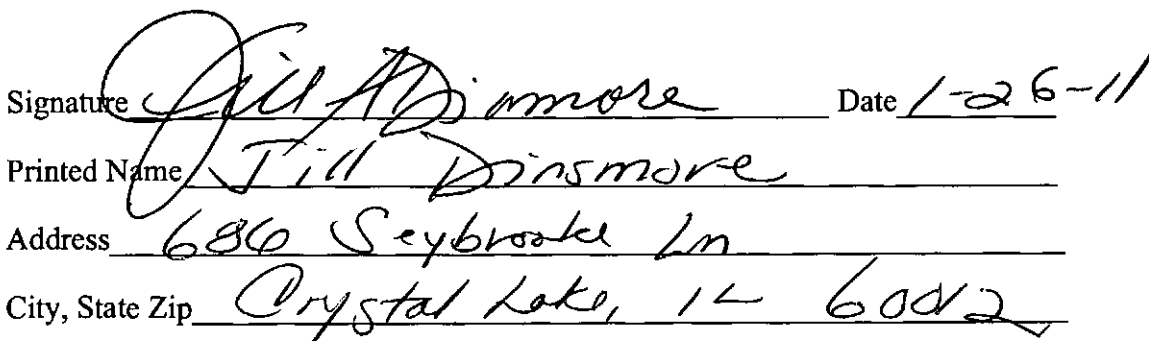 Signature Jill A Dinsmore Date 1-26-11
Printed Name Jill Dinsmore
Address 686 Seybrooke Ln
City, State Zip Crystal Lake, IL 60012